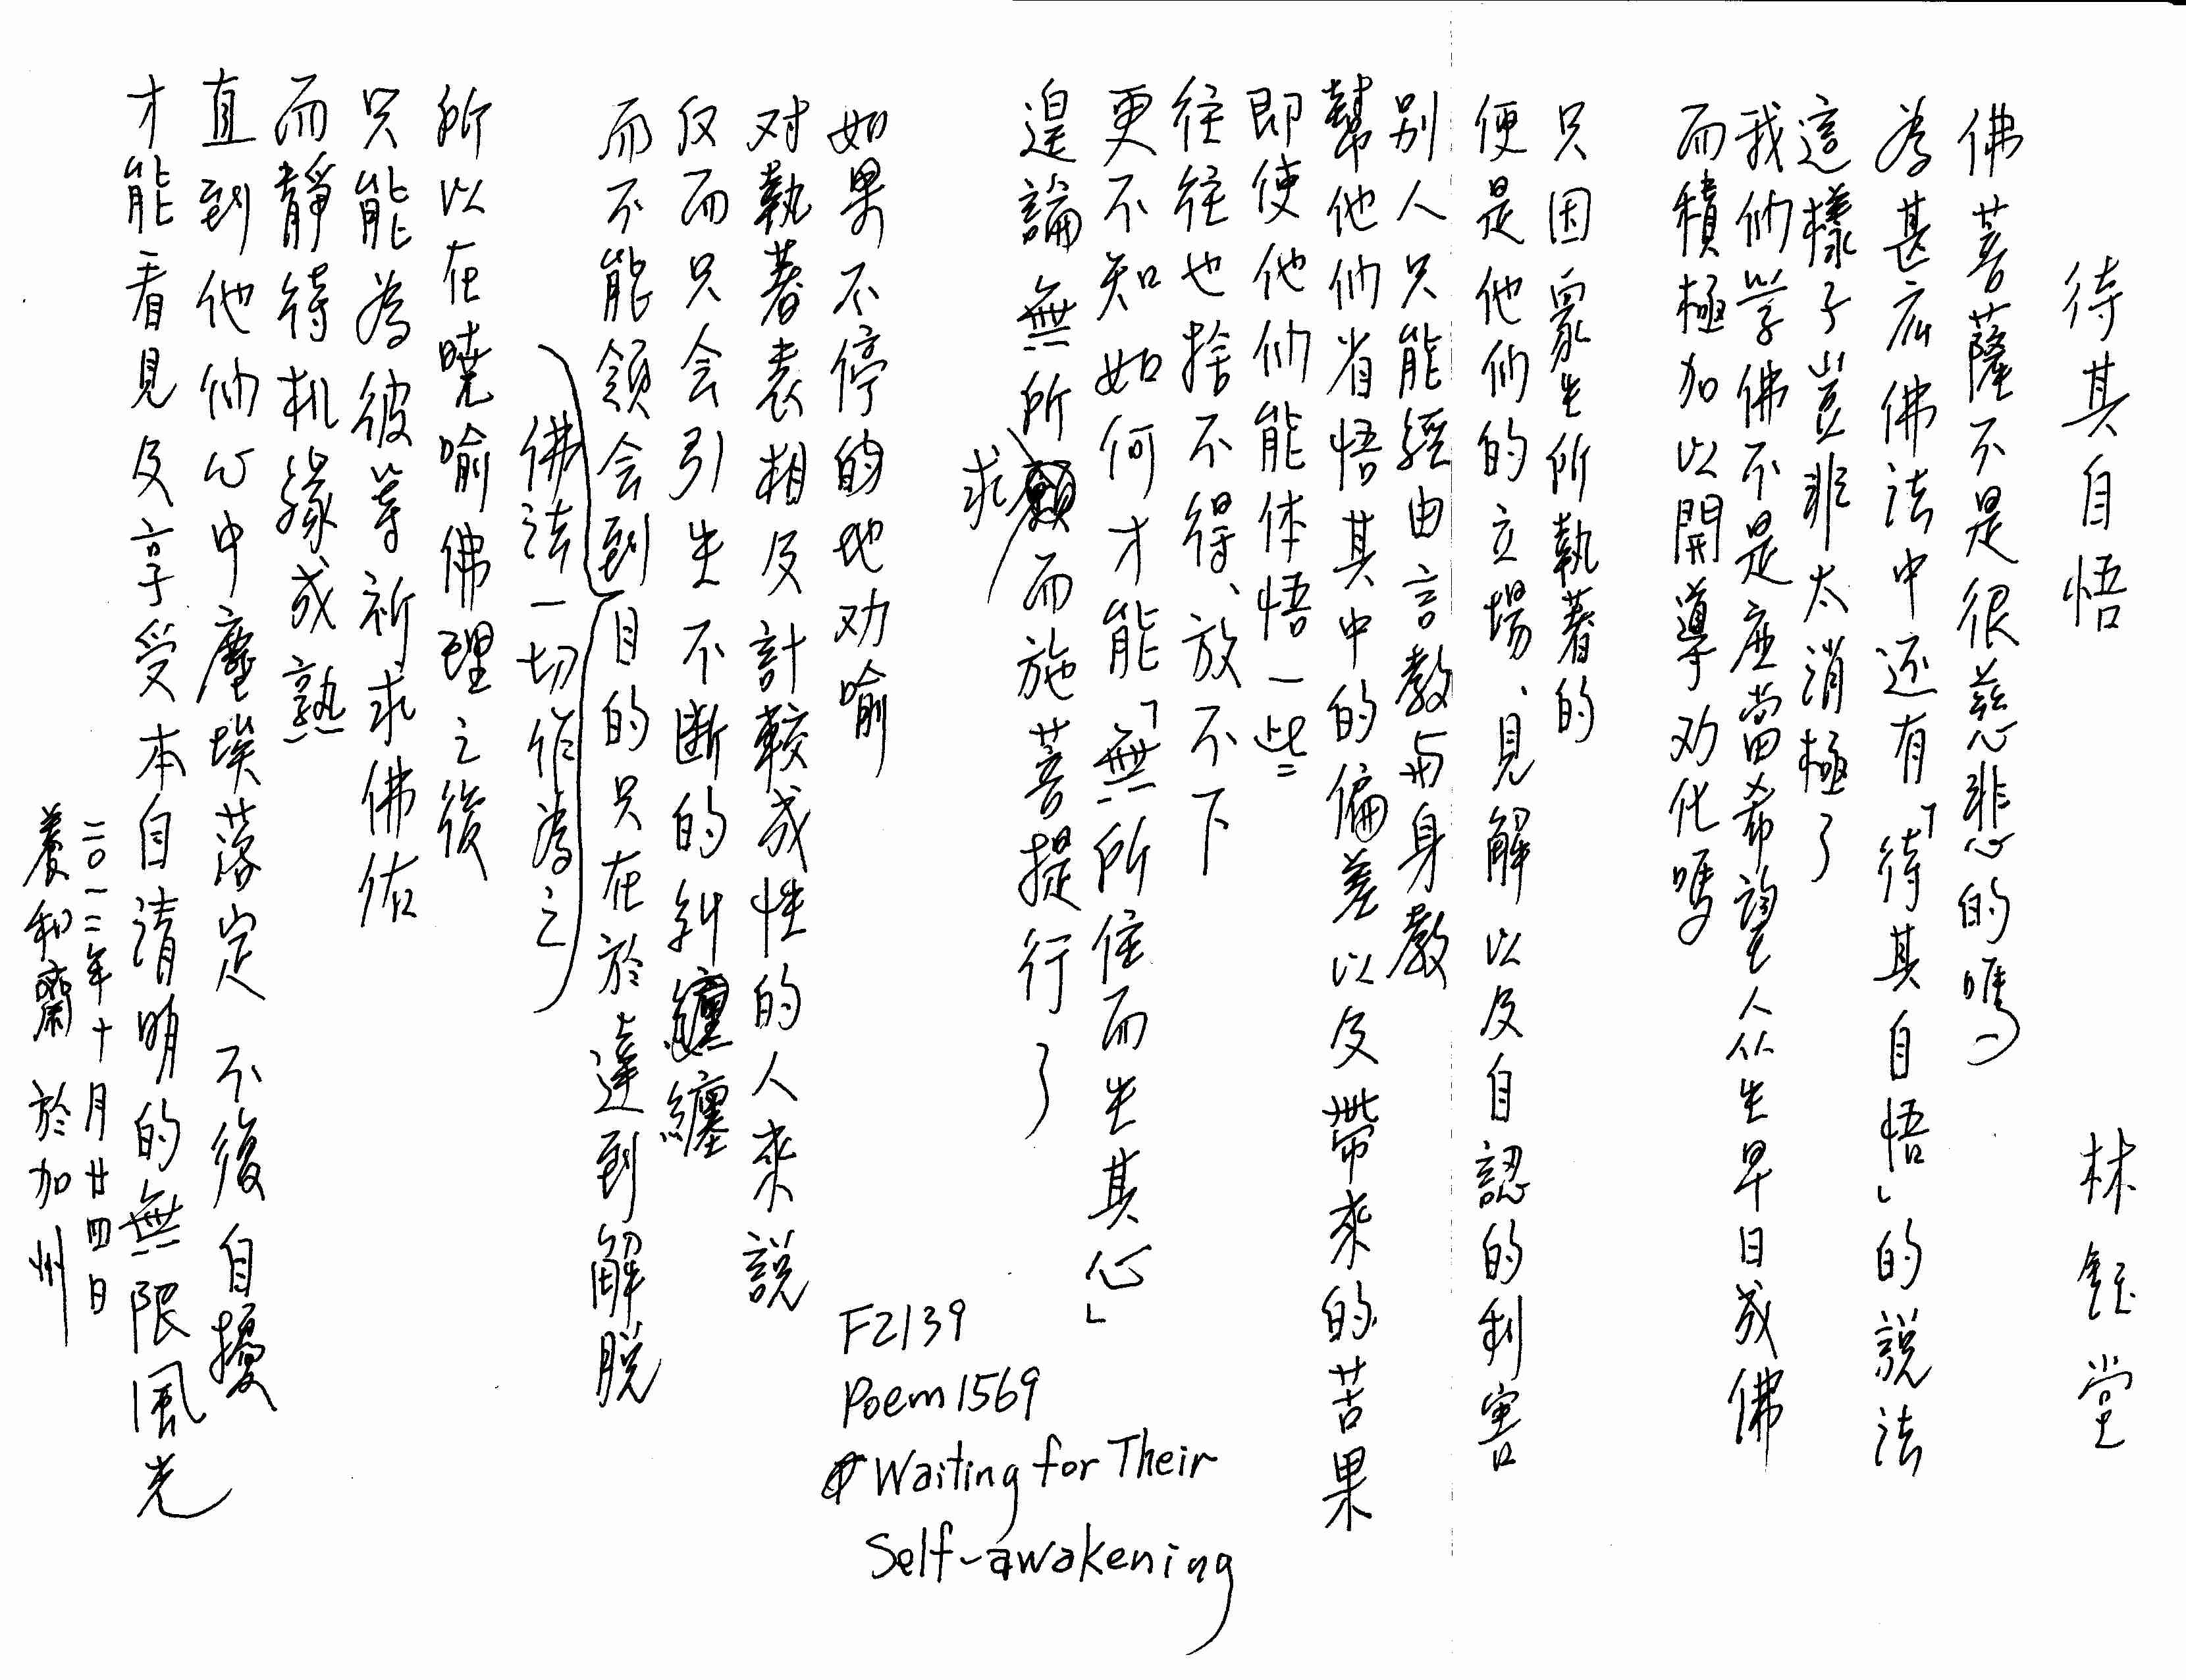 待其自悟　　林鈺堂
佛菩薩不是很慈悲的嗎
為甚広佛法中还有「待其自悟」的說法
這樣子豈非太消極了
我们学佛不是应當希望人人生早日成佛
而積極加以開導劝化嗎
只因眾生所執著的
便是他们的立場、見解以及自認的利害
別人只能經由言教与身教
幫他们省悟其中的偏差以及帶來的苦果
即使他们能体悟一些
往往也捨不得、放不下
更不知如何才能「無所住而生其心」
遑論無所求而施菩提行了
如果不停的地劝喻
对執著表相及計較成性的人來說
反而只会引生不断的糾纏
而不能領会到佛法一切作為之
目的只在於達到解脫
所以在曉喻佛理之後
只能為彼等祈求佛佑
而靜待机緣成熟
直到他们心中塵埃落定 不復自擾
才能看見及享受本自清明的無限風光
二〇一二年十月廿四日
養和齋 於加州
F2139
Poem 1569
Waiting for Their
Self-awakening